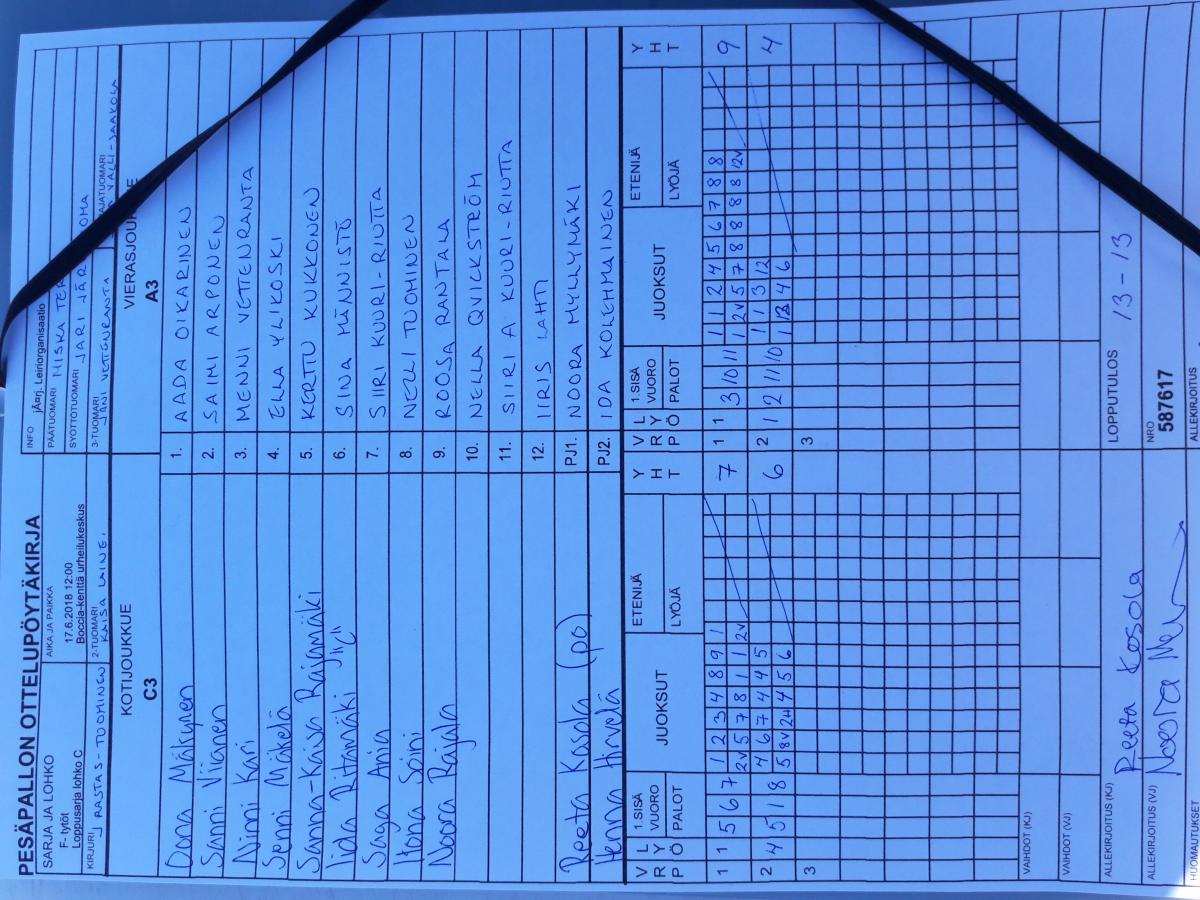 PESÄPALLON OTTELUPÖYTÄKIRJA
SARJA JA LOHKO
F- tytöt
Loppusarja lohko C
AIKA JA PAIKKA
17.6.2018 12:00
Boccia-kenttä urheilukeskus
INFO järj. Leiriorganisaatio
PÄÄTUOMARI MISKA TER
SYÖTTÖTUOMARI JARI JÄR OMA
KIRJURI J RASTAS-TUOMINEN
2-TUOMARI KAISA LAINE.
3-TUOMARI JANI VETTENRANTA
AJATUOMARI VALLI-JAAKOLA
KOTIJOUKKUE
C3
VIERASJOU E
A3
Oona Mäkynen
1. AADA OIKARINEN
Sanni Viianen
2. SAIMI ARPONEN
Ninni Kari
3. MENNI VETTENRANTA
Senni Mäkelä
4. ELLA YLIKOSKI
Sanna-Kaisa Rajamäki
5. KERTTU KUKKONEN
Iida Ritamäki "C"
6. SINA MÄNNISTÖ
Saga Ania
7. SIIRI KUURI-RIUTTA
Ilona Soini
8. NELLI TUOMINEN
Noora Rajala
9. ROOSA RANTALA
10. NELLA QVICKSTRÖM
11. SIIRI A KUURI-RIUTTA
12. IIRIS LAHTI
Reeta Kosola (po)
PJ1. NOORA MYLLYMÄKI
Henna Hirvelä
PJ2. IDA KOLEHMAINEN
V R P
L Y Ö
1.SISÄ VUORO PALOT
JUOKSUT
ETENIJÄ
LYÖJÄ
Y H T
V R P
L Y Ö
1.SISÄ VUORO PALOT
JUOKSUT
ETENIJÄ
LYÖJÄ
Y H T
1 1 5 6 7
1 2 3 4 8 9 1
2V 5 7 8 1 1 2V
7
1 1 3 10 11
1 1 2 4 5 6 7 8 8
1 2V 5 7 8 8 8 8 12V
9
2 4 5 1 8
4 6 7 4 4 5
5 8V 2H 4 5 6
6
2 1 2 11 10
1 1 3 12
4 6
4
3
3
VAIHDOT (KJ)
VAIHDOT (VJ)
ALLEKIRJOITUS (KJ) Reeta Kosola
LOPPUTULOS 13-13
ALLEKIRJOITUS (VJ) Noora
NRO
587617
HUOMAUTUKSET
ALLEKIRJOITUS